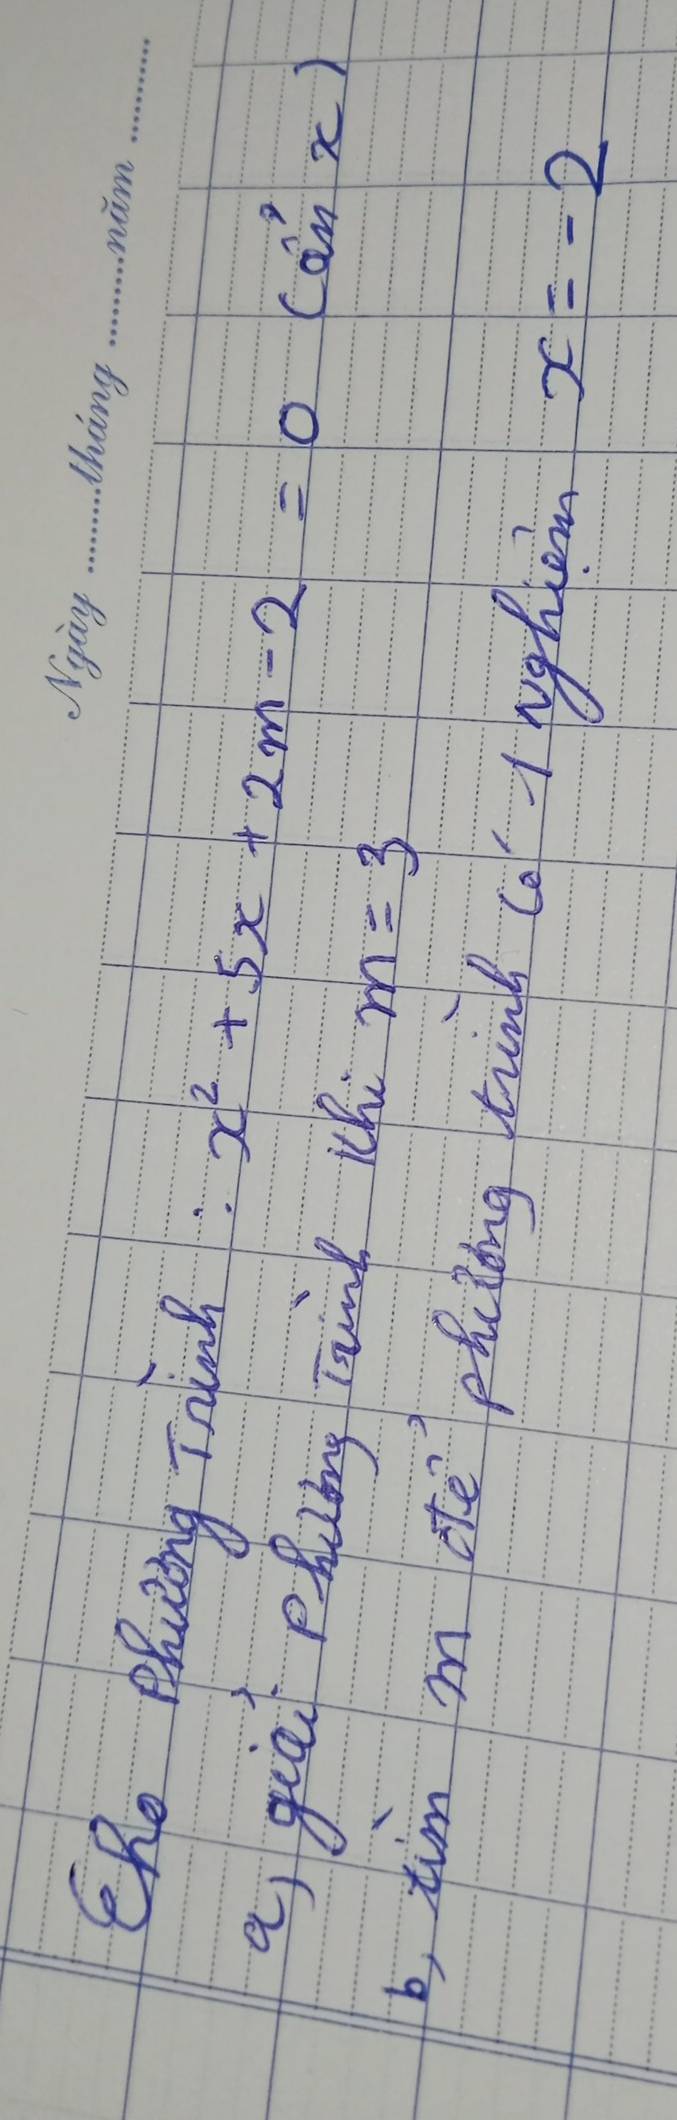 Ngày ..........tháng ..........năm ..........
Cho Phương Trình : x² + 5x + 2m - 2 = 0 (ẩn x)
a, giải Phương Trình Khi m = 3
b, tìm m để phương trình có 1 nghiệm x = -2